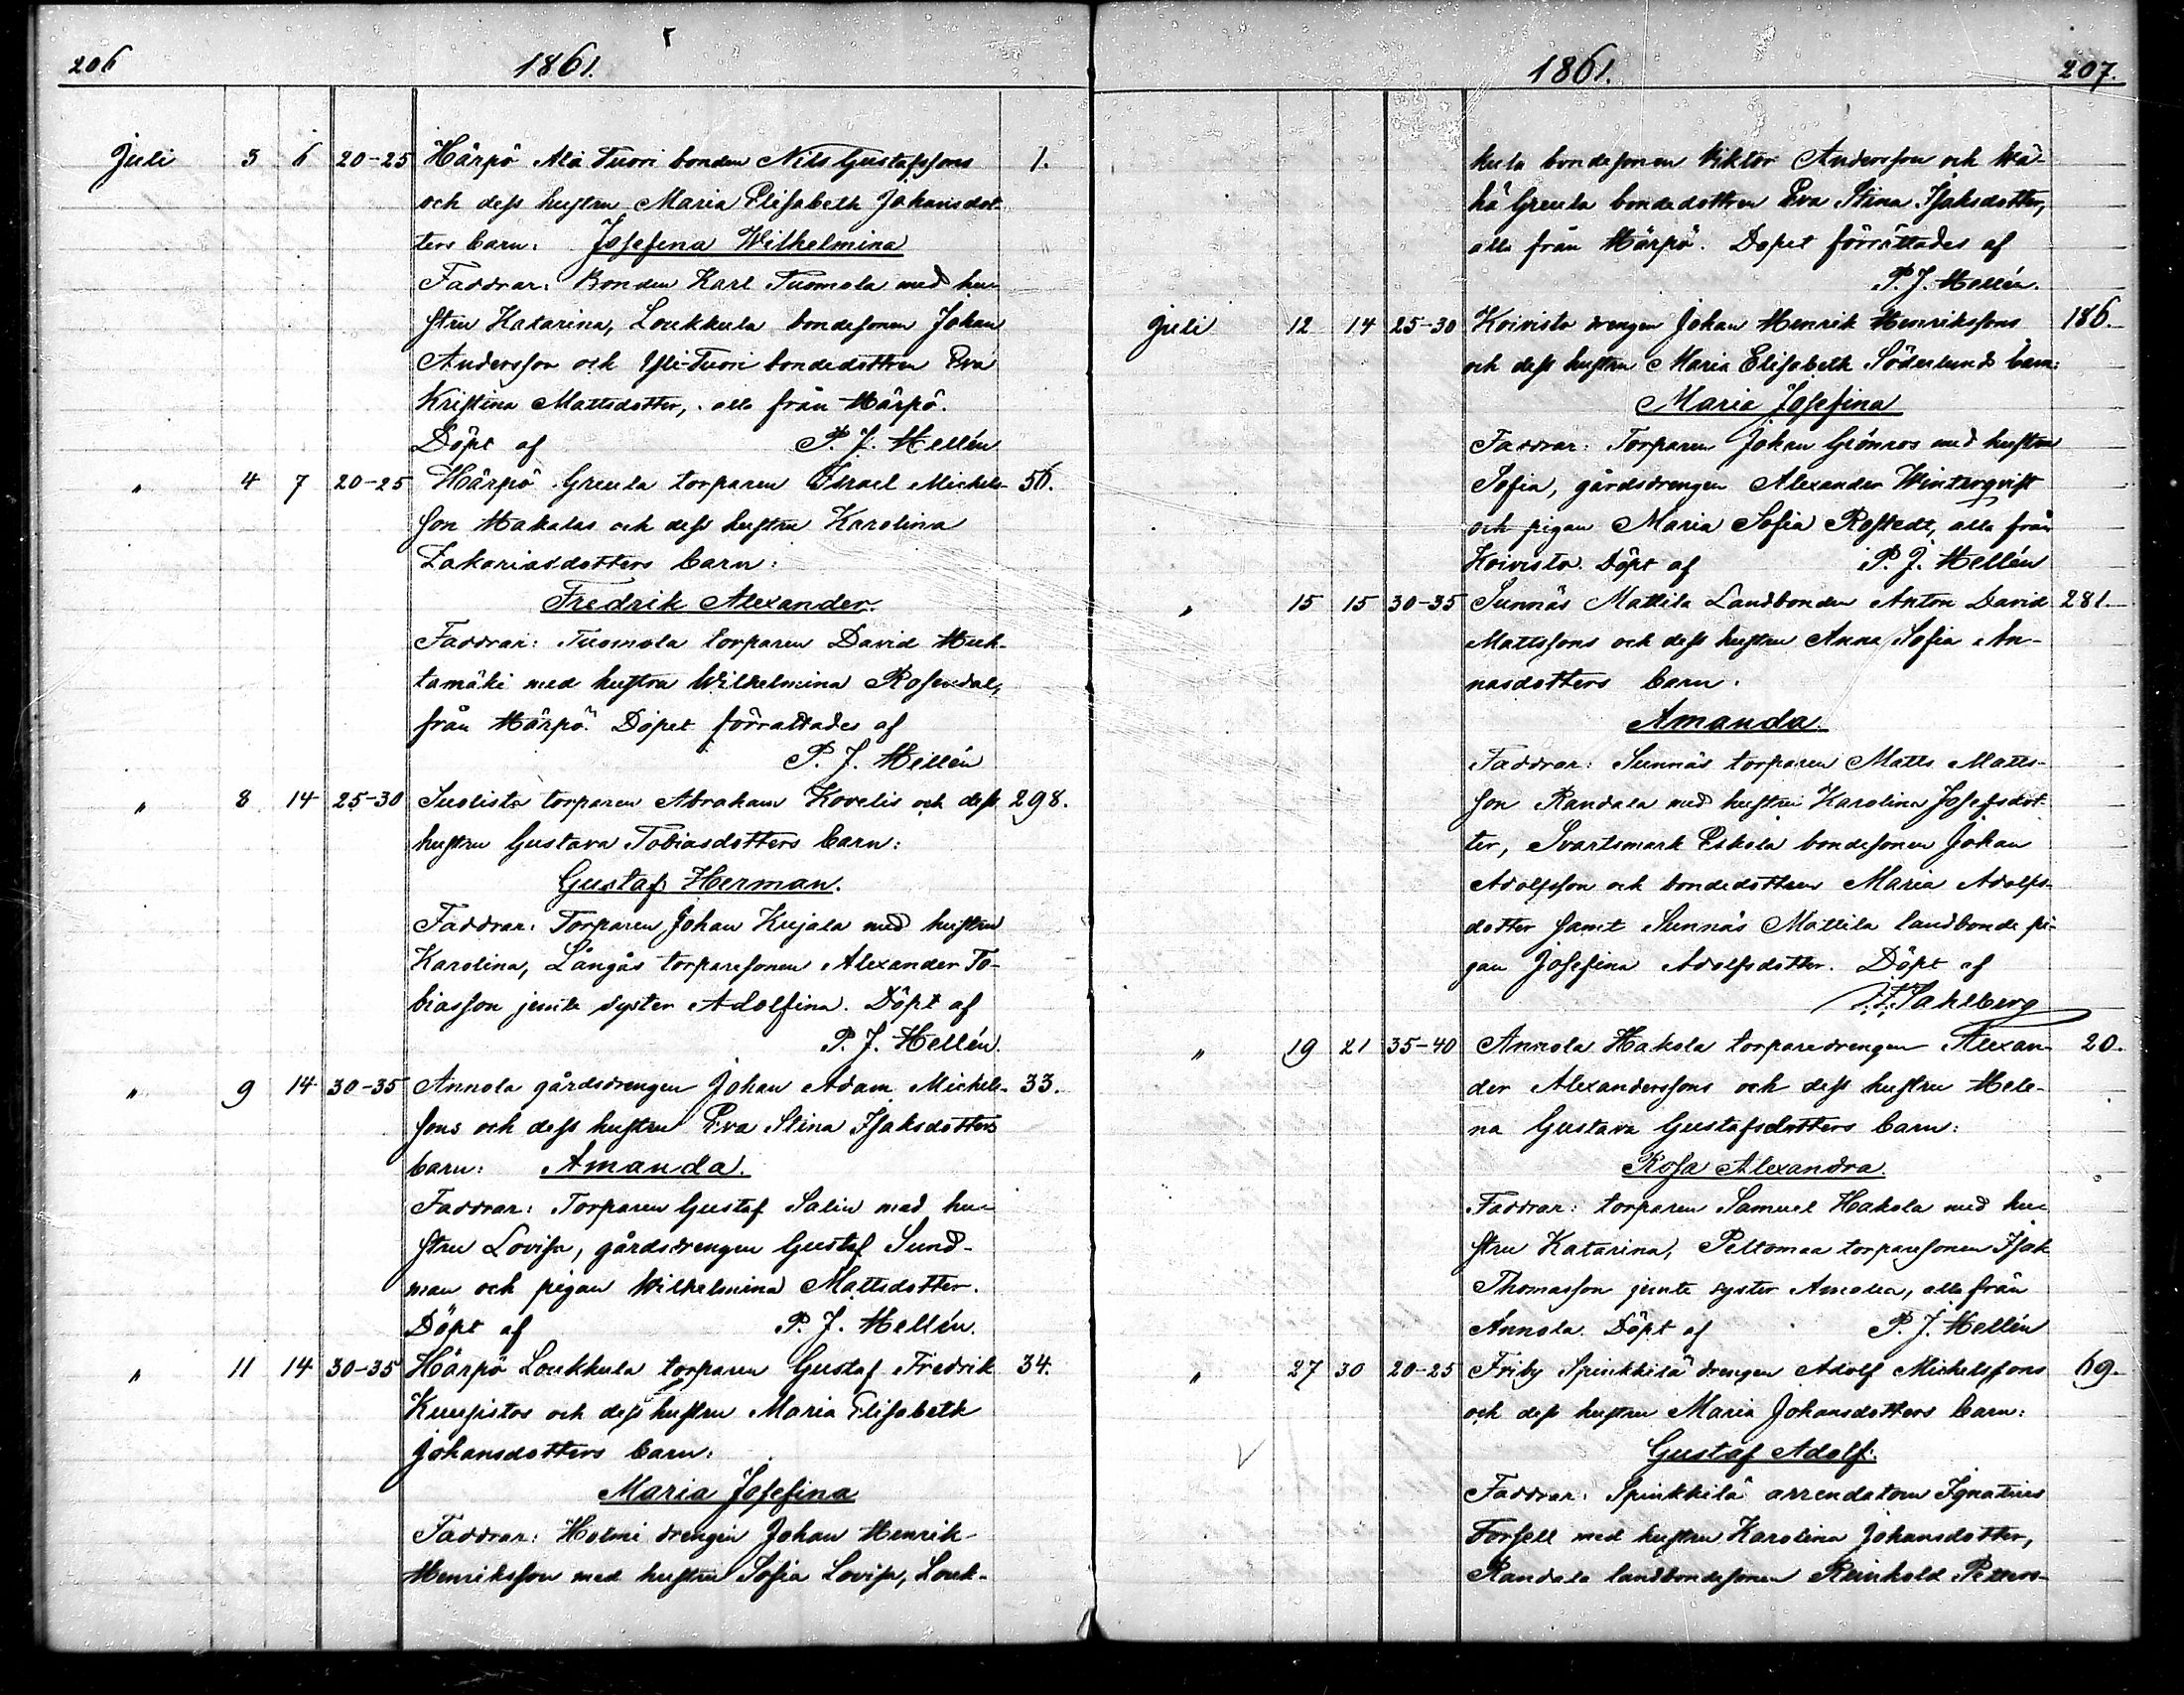 206 1861.
Juli 3 6 20-25 Härpö Ala Tuori bonden Nils Gustafssons 1.
och dess hustru Maria Elisabeth Johansdot-
ters barn: Josefina Wilhelmina
Faddrar: Bonden Karl Tuomola med hu-
stru Katarina, Loukkula bondesonen Johan
Andersson och Yli-Tuori bondedottren Eva
Kristina Mattsdotter, alla från Härpö.
Döpt af P. J. Hellén
" 4 7 20-25 Härpö Greula torparen Israel Michels- 56.
son Hakalas och dess hustru Karolina
Zakariasdotters barn:
Fredrik Alexander.
Faddrar: Tuomola torparen David Huh-
tamäki med hustru Wilhelmina Rosendal,
från Härpö. Dopet förrättades af
P. J. Hellén
" 8 14 25-30 Suolisto torparen Abraham Kovelis och dess 298.
hustru Gustava Tobiasdotters barn:
Gustaf Herman.
Faddrar: Torparen Johan Kujala med hustru
Karolina, Långås torparesonen Alexander To-
biasson jemte syster Adolfina. Döpt af
P. J. Hellén.
" 9 14 30-35 Annola gårdsdrengen Johan Adam Michels- 33.
sons och dess hustru Eva Stina Isaksdotters
barn: Amanda.
Faddrar: Torparen Gustaf Salin med hu-
stru Lovisa, gårdsdrengen Gustaf Sund-
man och pigan Wilhelmina Mattsdotter.
Döpt af P. J. Hellén.
" 11 14 30-35 Härpö Loukkula torparen Gustaf Fredrik 34.
Kuusistos och dess hustru Maria Elisabeth
Johansdotters barn:
Maria Josefina
Faddrar: Holmi drengen Johan Henrik
Henriksson med hustru Sofia Lovisa, Louk-
1861. 207.
kula bondesonen Viktor Andersson och Wä-
hä Greula bondedottren Eva Stina Isaksdotter,
alla från Härpö. Dopet förrättades af
P. J. Hellén.
Juli 12 14 25-30 Koivisto drengen Johan Henrik Henrikssons 186.
och dess hustru Maria Elisabeth Söderlunds barn:
Maria Josefina
Faddrar: Torparen Johan Grönros med hustru
Sofia, gårdsdrengen Alexander Winterqvist
och pigan Maria Sofia Rostedt, alla från
Koivisto. Döpt af P. J. Hellén
" 15 15 30-35 Sunnäs Mattila Landbonden Anton David 281.
Mattssons och dess hustru Anna Sofia An-
nasdotters barn:
Amanda.
Faddrar: Sunnäs torparen Matts Matts-
son Randala med hustru Karolina Josefsdot-
ter, Svartsmark Eskola bondesonen Johan
Adolfsson och bondedottren Maria Adolfs-
dotter samt Sunnäs Mattila landbonde pi-
gan Josefina Adolfsdotter. Döpt af
Sahlberg
" 19 21 35-40 Annola Hakola torparedrengen Alexan- 20.
der Alexanderssons och dess hustru Hele-
na Gustava Gustafsdotters barn:
Rosa Alexandra.
Faddrar: torparen Samuel Hakola med hu-
stru Katarina, Peltomaa torparesonen Isak
Thomasson jemte syster Amalia, alla från
Annola. Döpt af P. J. Hellén
" 27 30 20-25 Friby Spinkkilä drengen Adolf Michelssons 69.
och dess hustru Maria Johansdotters barn:
Gustaf Adolf.
Faddrar: Spinkkilä arrendatorn Ignatius
Forsell med hustru Karolina Johansdotter,
Randala landbondesonen Reinhold Petters-